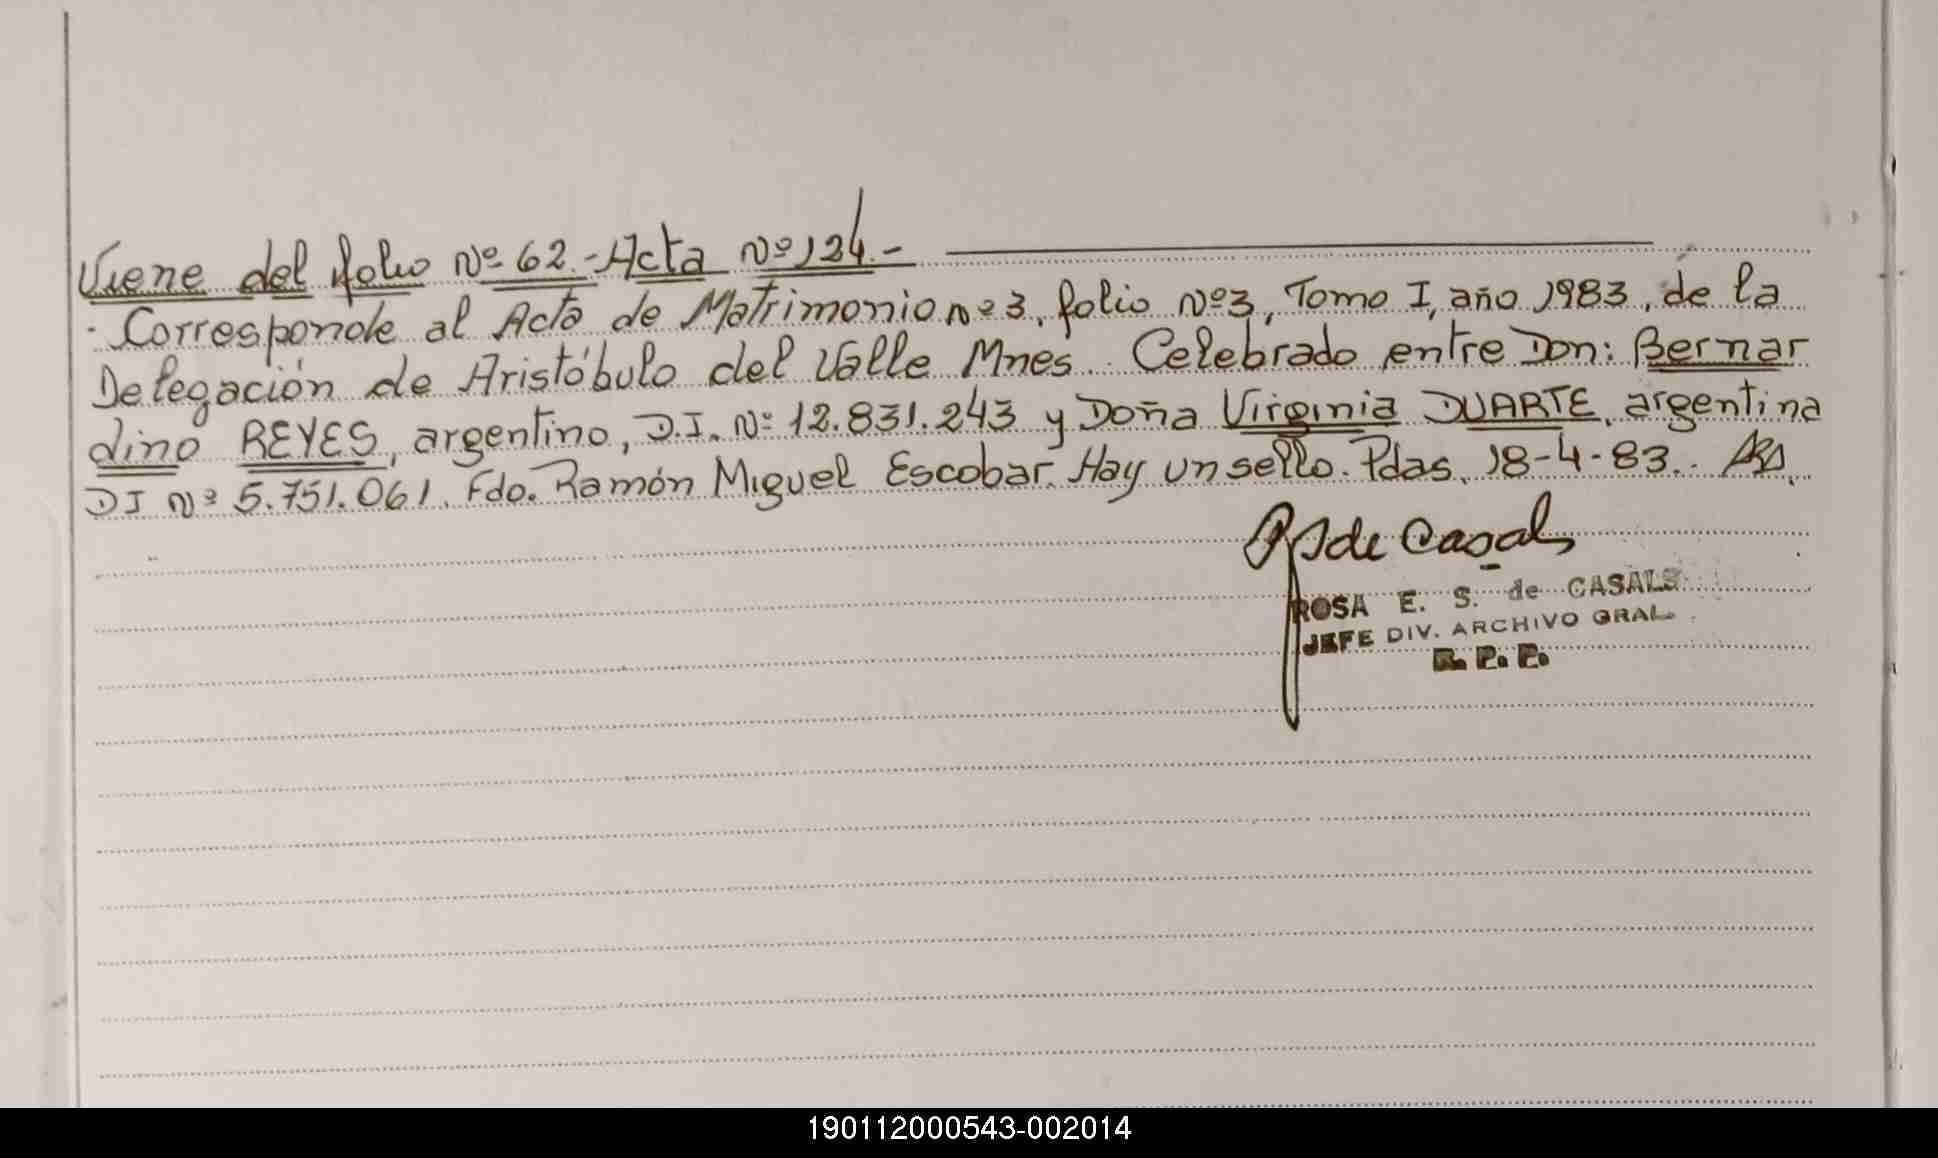 Viene del folio Nº 62.- Acta Nº 124.-
. Corresponde al Acta de Matrimonio nº 3, folio Nº 3, Tomo I, año 1983, de la
Delegación de Aristóbulo del Valle Mnes. Celebrado entre Don: Bernar
dino REYES, argentino, D.I. Nº 12.831.243 y Doña Virginia DUARTE, argentina
DI Nº 5.751.061. Fdo. Ramón Miguel Escobar. Hay un sello. Pdas. 18-4-83.
de Casals
ROSA E. S. de CASALS
JEFE DIV. ARCHIVO GRAL.
R. P. P.
190112000543-002014